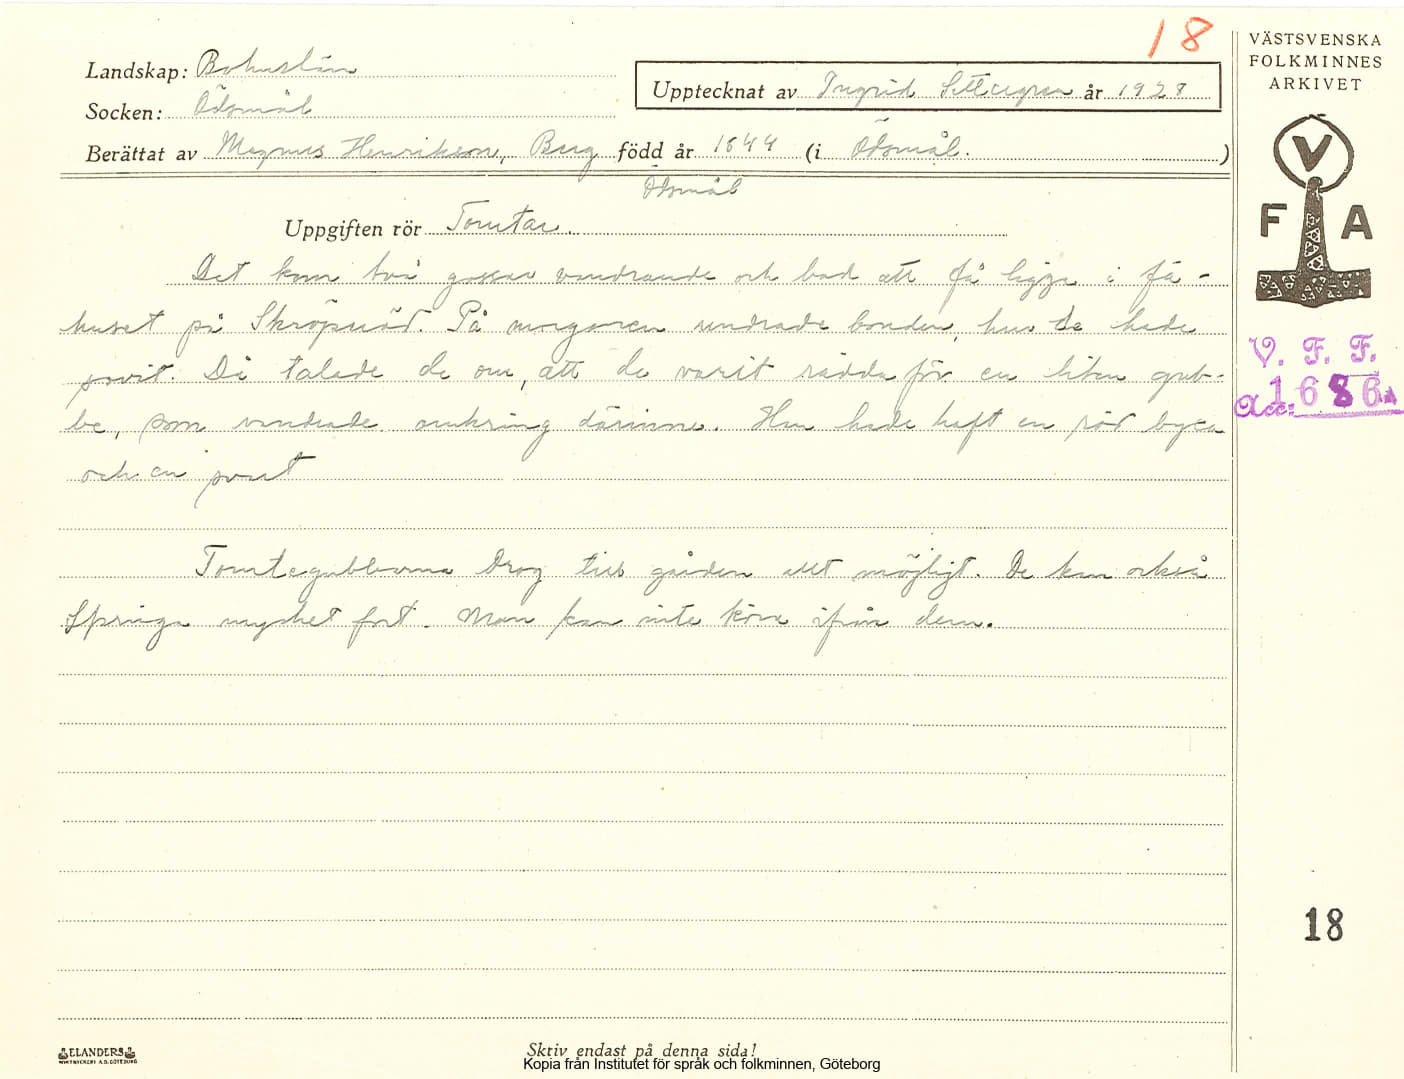 18
Landskap: Bohuslän
Socken: Ödsmål
Upptecknat av Ingrid år 1928
Berättat av Magnus Henrikson, Berg född år 1844 (i Ödsmål. )
Ödsmål
Uppgiften rör Tomtar.
Det kom två gossar vandrande och bad att få ligga i fä-
huset på Skröperöd. På morgonen undrade bonden, hur de hade
sovit. Då talade de om, att de varit rädda för en liten gub-
be, som vandrade omkring därinne. Han hade haft en röd byxa
och en svart
Tomtegubbarna drog till gården allt möjligt. De kan också
springa mycket fort. Man kan inte köra ifrån dem.
VÄSTSVENSKA
FOLKMINNES
ARKIVET
V
F A
V. F. F.
Acc: 1686
18
ELANDERS
Skriv endast på denna sida!
Kopia från Institutet för språk och folkminnen, Göteborg